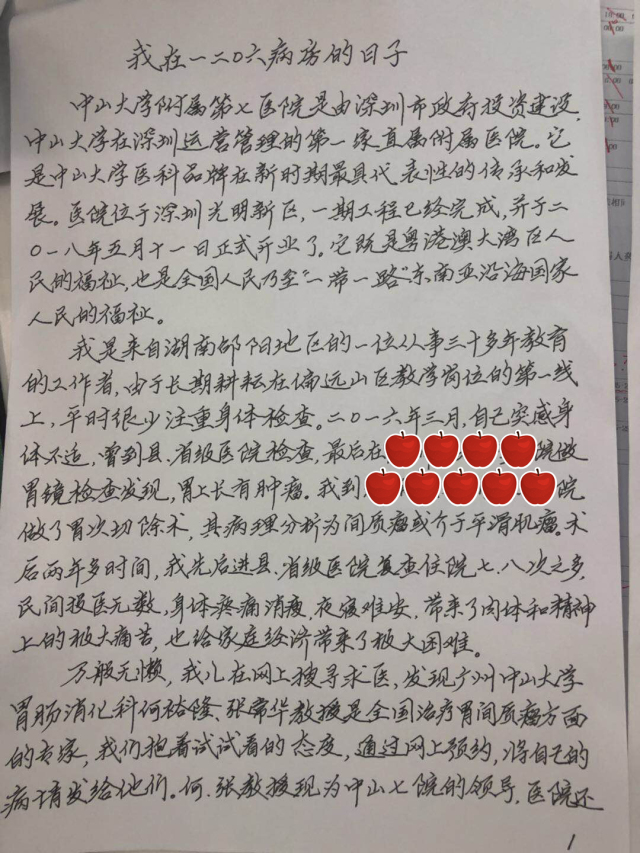 我在一二〇六病房的日子
中山大学附属第七医院是由深圳市政府投资建设,
中山大学在深圳运营管理的第一家直属附属医院。它
是中山大学医科品牌在新时期最具代表性的传承和发
展。医院位于深圳光明新区,一期工程已经完成,并于二
〇一八年五月十一日正式开业了。它既是粤港澳大湾区人
民的福祉,也是全国人民乃至“一带一路”东南亚沿海国家
人民的福祉。
我是来自湖南邵阳地区的一位从事三十多年教育
的工作者,由于长期耕耘在偏远山区教学岗位的第一线
上,平时很少注重身体检查。二〇一六年三月,自己突感身
体不适,曾到县、省级医院检查,最后在 院做
胃镜检查发现,胃上长有肿瘤。我到 院
做了胃次切除术,其病理分析为间质瘤或介于平滑肌瘤。术
后两年多时间,我先后进县、省级医院复查住院七、八次之多,
民间投医无数,身体疼痛消瘦,夜寝难安,带来了肉体和精神
上的极大痛苦,也给家庭经济带来了极大困难。
万般无懒,我儿在网上搜寻求医,发现广州中山大学
胃肠消化科何裕隆、张常华教授是全国治疗胃间质瘤方面
的专家,我们抱着试试看的态度,通过网上预约,将自己的
病情发给他们。何、张教授现为中山七院的领导,医院还
1